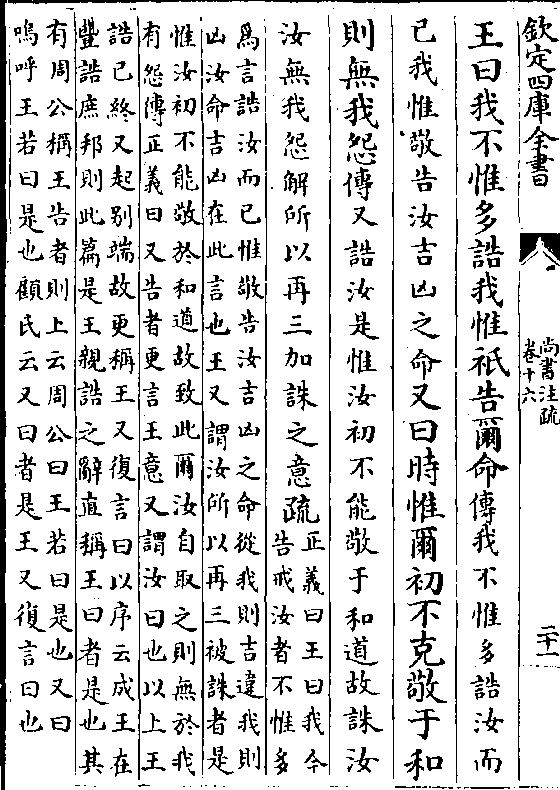 欽定四庫全書
尚書注疏
卷十六
二十一
王曰我不惟多誥我惟祇告爾命傳我不惟多誥汝而
已我惟敬告汝吉凶之命又曰時惟爾初不克敬于和
則無我怨傳又誥汝是惟汝初不能敬于和道故誅汝
汝無我怨解所以再三加誅之意疏
正義曰王曰我今
告戒汝者不惟多
為言誥汝而已惟敬告汝吉凶之命從我則吉違我則
凶汝命吉凶在此言也王又謂汝所以再三被誅者是
惟汝初不能敬於和道故致此爾汝自取之則無於我
有怨傳正義曰又告者更言王意又謂汝曰也以上王
誥已終又起别端故更稱王又復言曰以序云成王在
豐誥庶邦則此篇是王親誥之辭直稱王曰者是也其
有周公稱王告者則上云周公曰王若曰是也又曰
嗚呼王若曰是也顧氏云又曰者是王又復言曰也